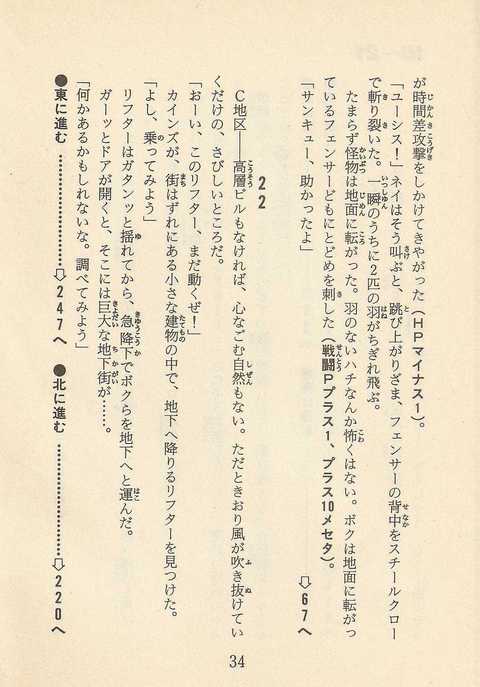 が時間差攻撃をしかけてきやがった（HPマイナス1）。
「ユーシス！」ネイはそう叫ぶと、跳び上がりざま、フェンサーの背中をスチールクロー
で斬り裂いた。一瞬のうちに2匹の羽がちぎれ飛ぶ。
たまらず怪物は地面に転がった。羽のないハチなんか怖くはない。ボクは地面に転がっ
ているフェンサーどもにとどめを刺した（戦闘Pプラス1、プラス10メセタ）。
「サンキュー、助かったよ」
⇨67へ
22
C地区――高層ビルもなければ、心なごむ自然もない。ただときおり風が吹き抜けてい
くだけの、さびしいところだ。
「おーい、このリフター、まだ動くぜ！」
カインズが、街はずれにある小さな建物の中で、地下へ降りるリフターを見つけた。
「よし、乗ってみよう」
リフターはガタンッと揺れてから、急降下でボクらを地下へと運んだ。
ガーッとドアが開くと、そこには巨大な地下街が……。
「何かあるかもしれないな。調べてみよう」
●東に進む…………⇨247へ ●北に進む…………⇨220へ
34